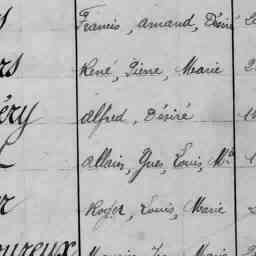 Francis, Armand, Désiré
rs René, Pierre, Marie
éry Alfred, Désiré
Allain, Yves, Louis, Mie
r Roger, Louis, Marie
oureux